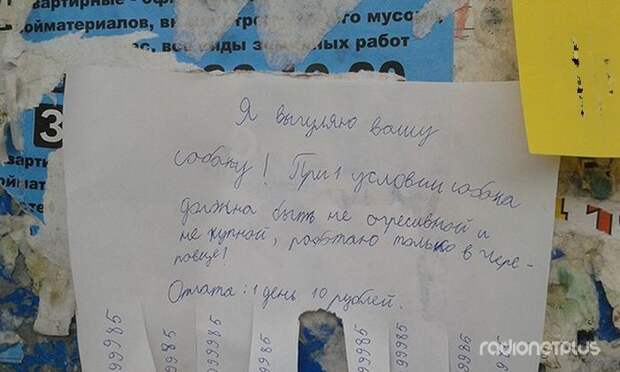 вартирные - оф
ойматериалов, вы го мусо
ас, все виды зе ных работ
З
варти
оймат
Я выгуляю вашу
собаку! При 1 условии собака
должна быть не огресивной и
не крупной, работаю только в Чере-
повце!
Оплата: 1 день 10 рублей.
99985
99985
99985
99985
99985
99985
99985
radionetplus